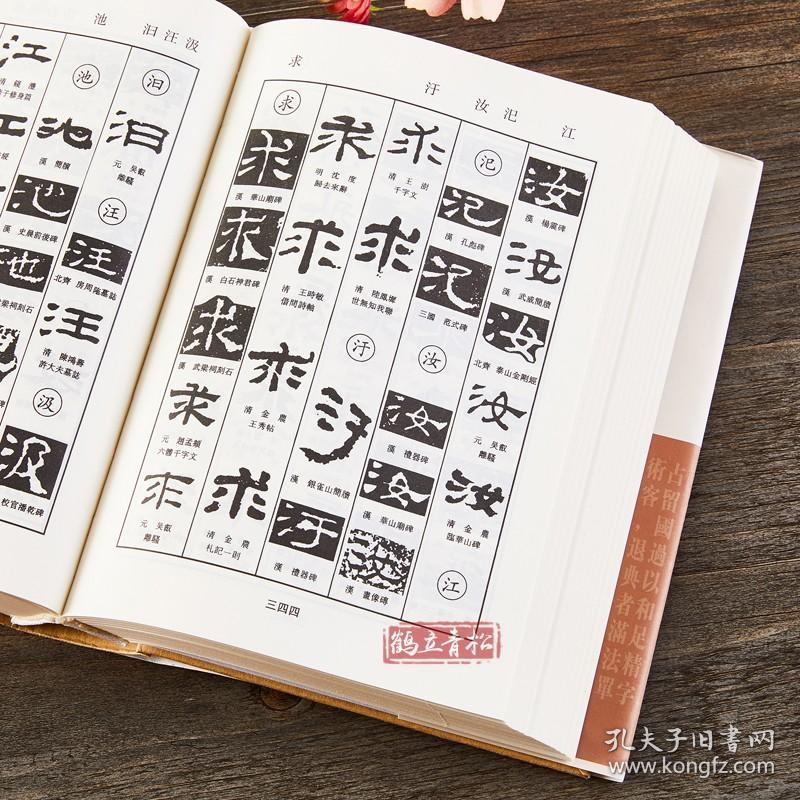 池 汩 汪 汲
江
清 錢灃
池
漢 簡牘
池
漢 史晨前後碑
汩
汩
元 吳叡
離騷
汪
汪
北齊 房周陁墓誌
汪
清 陳鴻壽
許大夫墓誌
汲
汲
校官潘乾碑
求 汙 汝 汜 江
求
求
漢 華山廟碑
求
漢 白石神君碑
求
漢 武梁祠刻石
求
元 趙孟頫
六體千字文
求
元 吳叡
離騷
求
明 沈度
歸去來辭
求
清 王時敏
借問詩軸
求
清 金農
王秀帖
求
清 金農
札記一則
求
清 王澍
千字文
求
清 陸鳳墀
世無知我聯
汙
汙
漢 銀雀山簡牘
汙
漢 禮器碑
汜
汜
漢 孔彪碑
汜
三國 范式碑
汝
汝
漢 禮器碑
汝
漢 華山廟碑
汝
漢 畫像磚
汝
漢 楊震碑
汝
漢 武威簡牘
汝
北齊 泰山金剛經
汝
元 吳叡
離騷
汝
清 金農
臨華山碑
江
三四四
鶴立青松
占留國過以和足精字
術客，退典者滿法單
孔夫子旧书网
www.kongfz.com